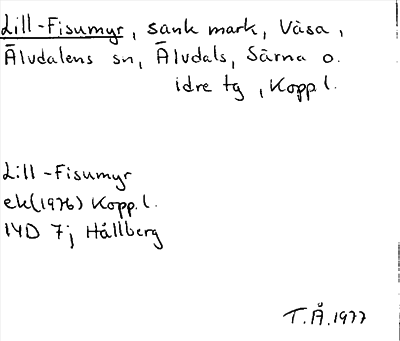 Lill-Fisumyr, sank mark, Våsa,
Älvdalens sn, Älvdals, Särna o.
idre tg, Kopp l.
Lill-Fisumyr
ek(1976) Kopp.l.
14D 7j Hållberg
T.Å.1977